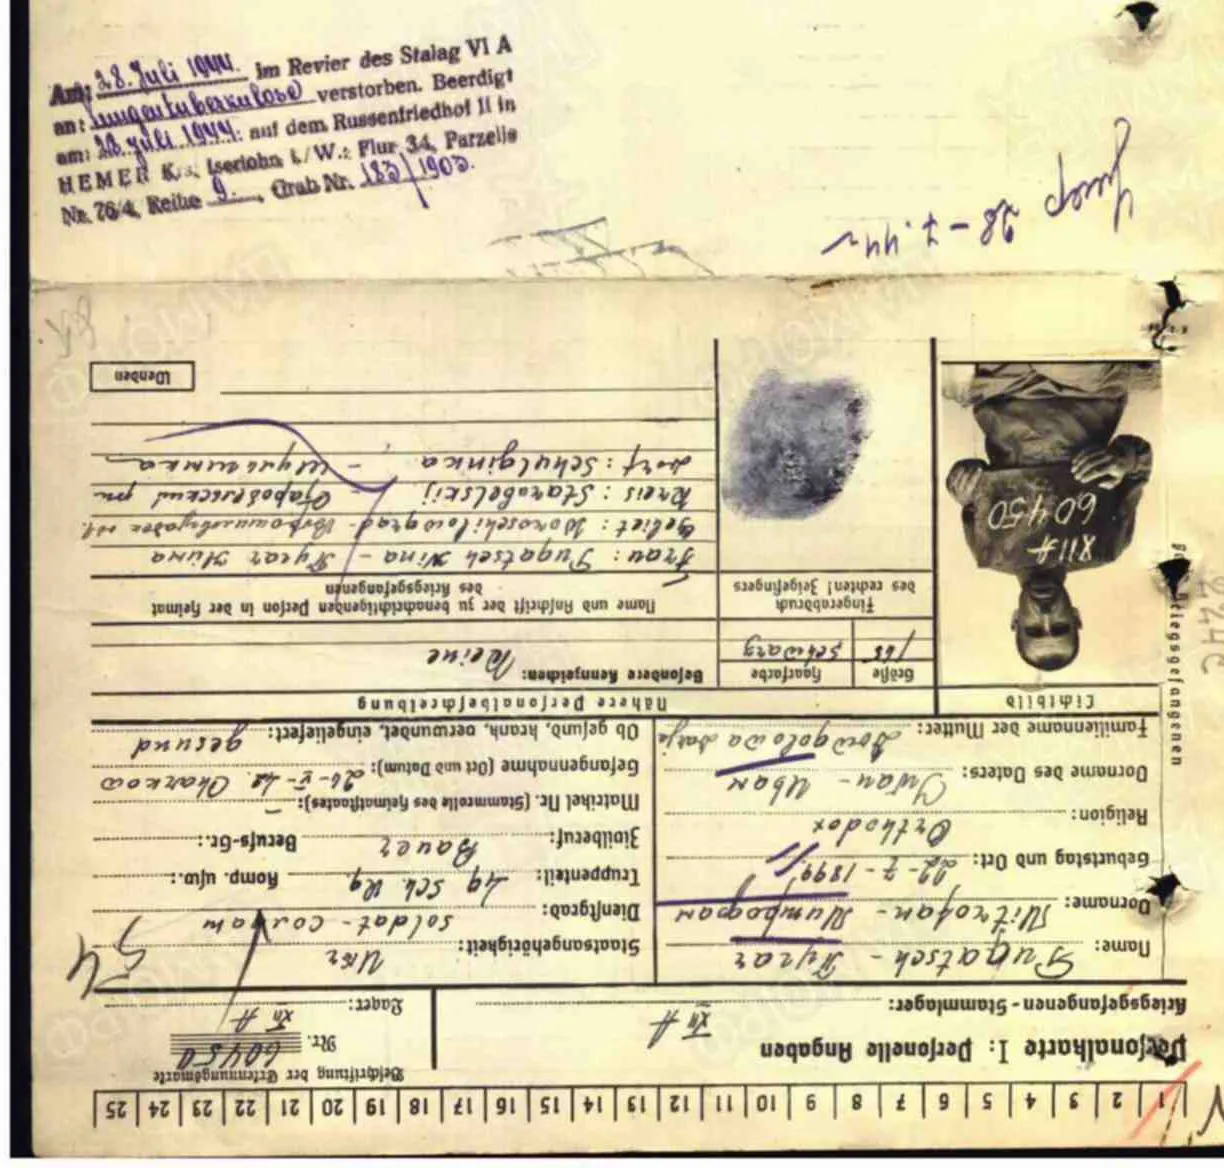 Am: 28. Juli 1944. im Revier des Stalag VI A
an: Lungentuberkulose verstorben. Beerdigt
am: 28. Juli 1944. auf dem Russenfriedhof II in
HEMER Krs. Iserlohn i./W.: Flur 34, Parzelle
Nr. 76/4, Reihe 9., Grab Nr. 183/1903.
28-7.44
1 2 3 4 5 6 7 8 9 10 11 12 13 14 15 16 17 18 19 20 21 22 23 24 25
Personalkarte I: Personelle Angaben
Kriegsgefangenen-Stammlager: XII A
Beschriftung der Erkennungsmarke
Nr. 60450
Lager: XII A
54
Name: Pugatsch - Пугач
Vorname: Mitrofan - Митрофан
Geburtstag und Ort: 22-7-1899
Religion: Orthodox
Vorname des Vaters: Iwan - Иван
Familienname der Mutter:
Staatsangehörigkeit: Ukr
Dienstgrad: Soldat - Солдат
Truppenteil: Komp. usw.:
Zivilberuf: Bauer Berufs-Gr.:
Matrikel Nr. (Stammrolle des Heimatstaates): -
Gefangennahme (Ort und Datum): 26-V-42. Charkow
Ob gesund, krank, verwundet, eingeliefert: gesund
Lichtbild
Nähere Personalbeschreibung
Größe
Haarfarbe
Besondere Kennzeichen: Keine
168
schwarz
Fingerabdruck
des rechten! Zeigefingers
Name und Anschrift der zu benachrichtigenden Person in der Heimat
des Kriegsgefangenen
Frau: Pugatsch Nina - Пугач Нина
Gebiet: Woroschilowgrad - Ворошиловградск обл.
Kreis: Starobelskij - Старобельский рн
Dorf: Schulginka - Шульгинка
Wenden
XII A
60450
Kriegsgefangenen